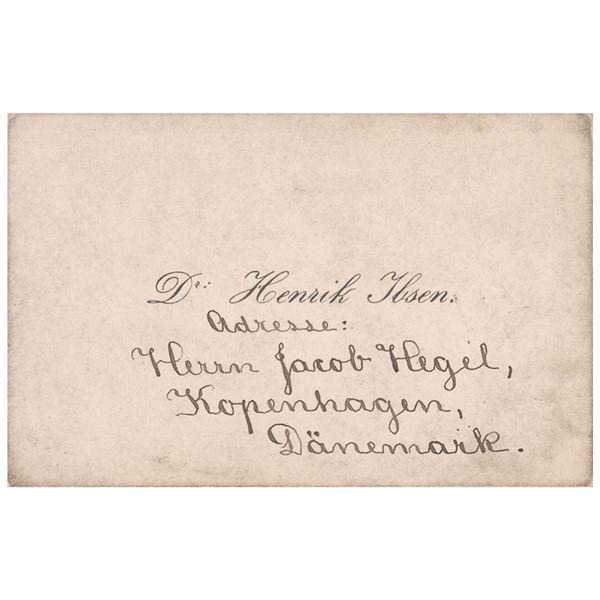 Dr: Henrik Ibsen.
Adresse:
Herrn Jacob Hegel,
Kopenhagen,
Dänemark.